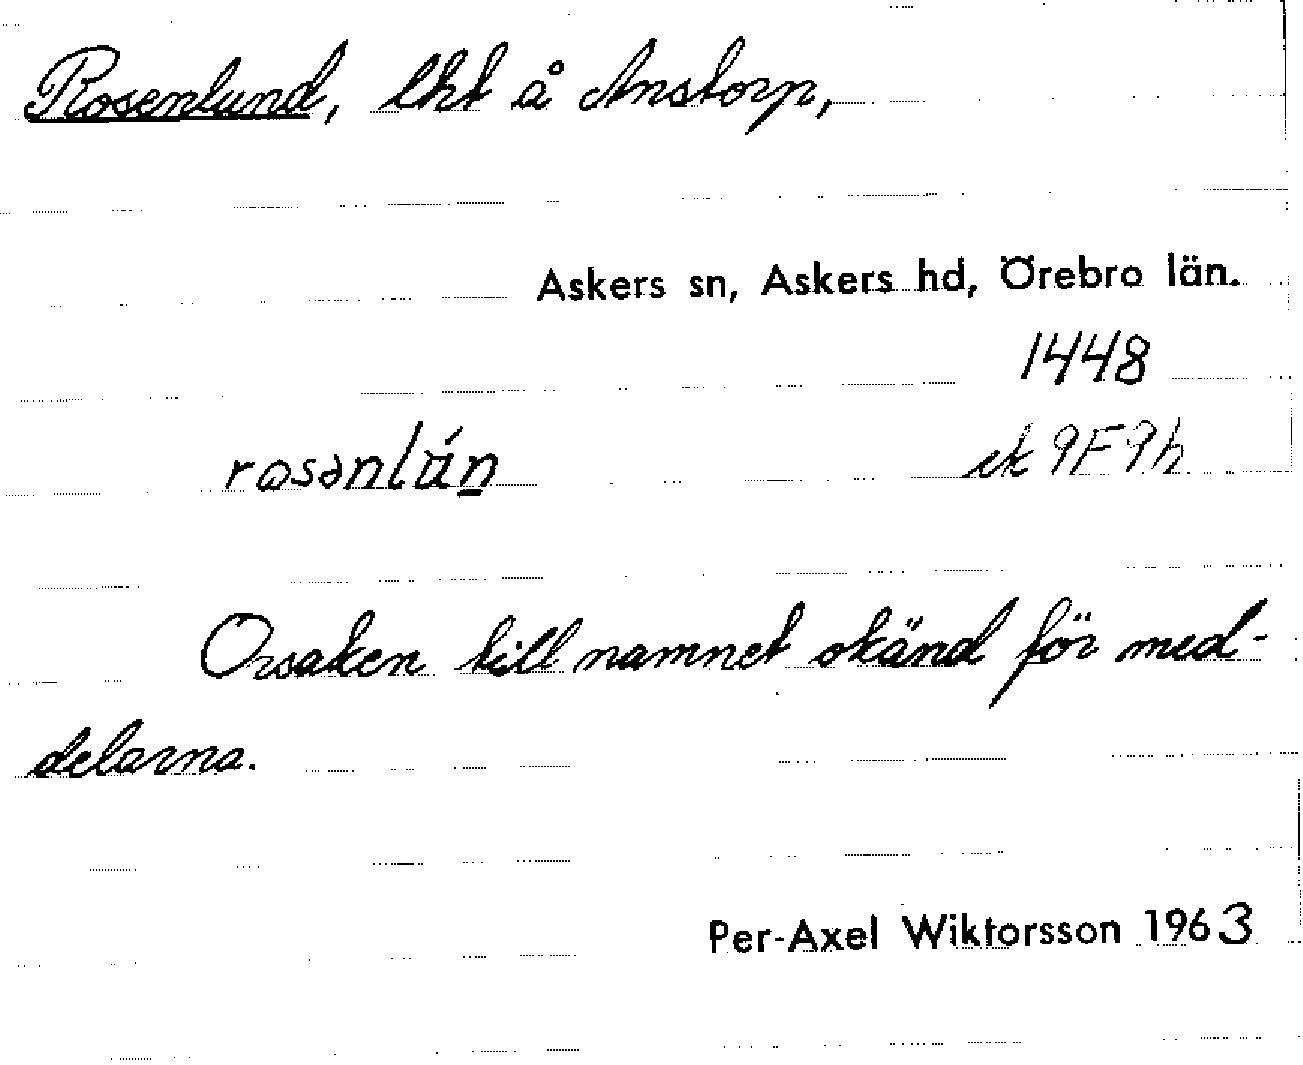 Rosenlund, lht å Anstorp,
Askers sn, Askers hd, Örebro län.
1448
rosənlún ek 9F9h
Orsaken till namnet okänd för med-
delarna.
Per-Axel Wiktorsson 1963